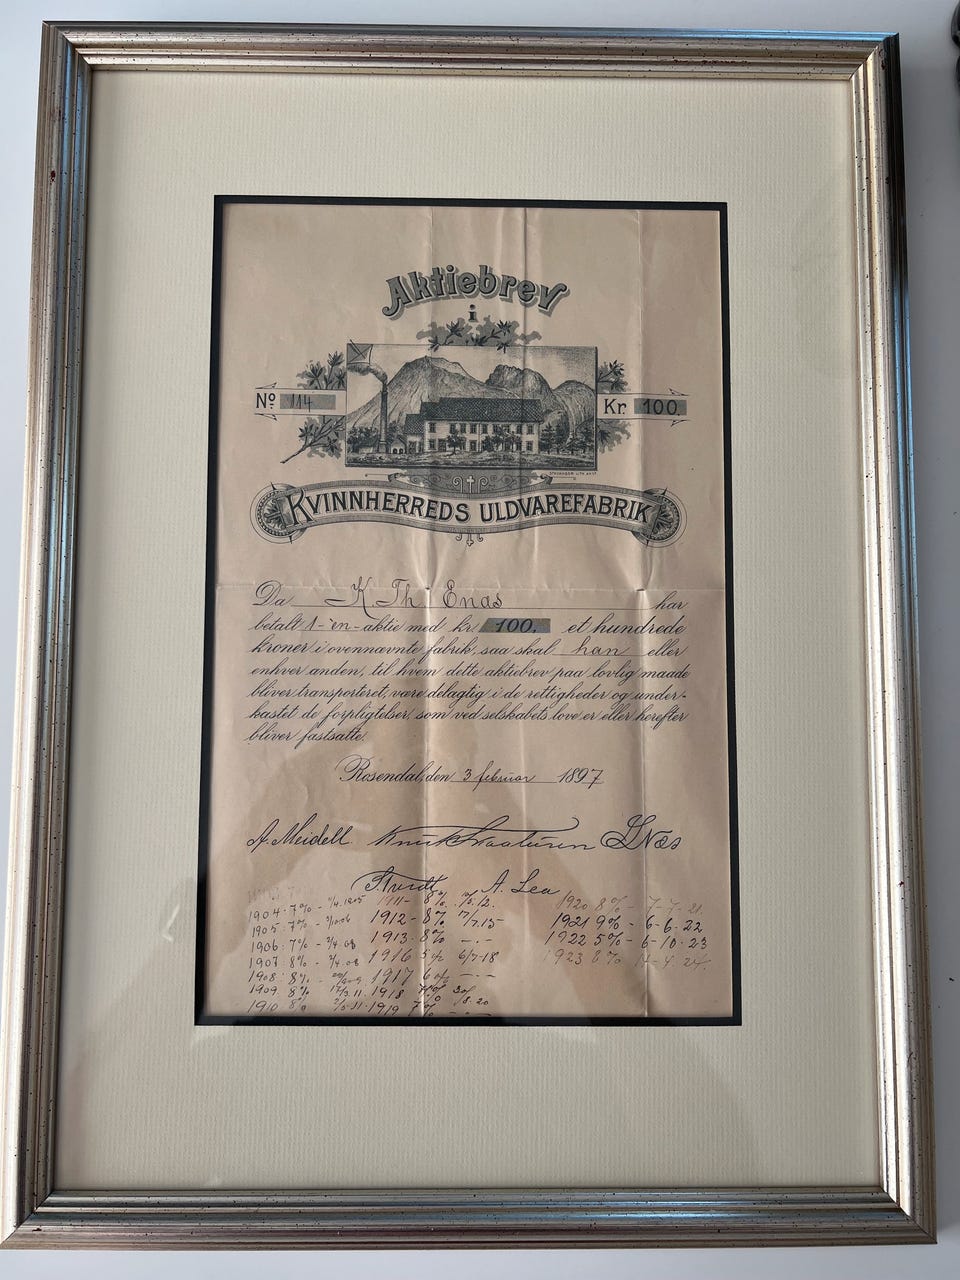 Aktiebrev
i
No 114
Kr. 100.
STAVANGER LITH. AKTS
KVINNHERREDS ULDVAREFABRIK
Da K. Th. Enas har
betalt 1-en-aktie med kr. 100, et hundrede
kroner i ovennavnte fabrik, saa skal han eller
enhver anden, til hvem dette aktiebrev paa lovlig maade
bliver transporteret, være delagtig i de rettigheder og under-
kastet de forpligtelser, som ved selskabets love er eller herefter
bliver fastsatte.
Rosendal, den 3 februar 1897
A. Meidell Næs
A. Lea
1904: 7% - 1911 - 8% 12. 1920 8% - 7-7-21.
1905: 7% - 1912 - 8% 17/7.15 1921 9% - 6-6-22
1906: 7% - 3/4.08 1913. 8% -.- 1922 5% - 6-10-23
1907: 8% - 3/4.08 1916 5% 6/7-18 1923 8% 24.
1908: 8% - 1917 6% -.-
1909 8% 11. 1918 20
1910 8% 11. 1919 7%